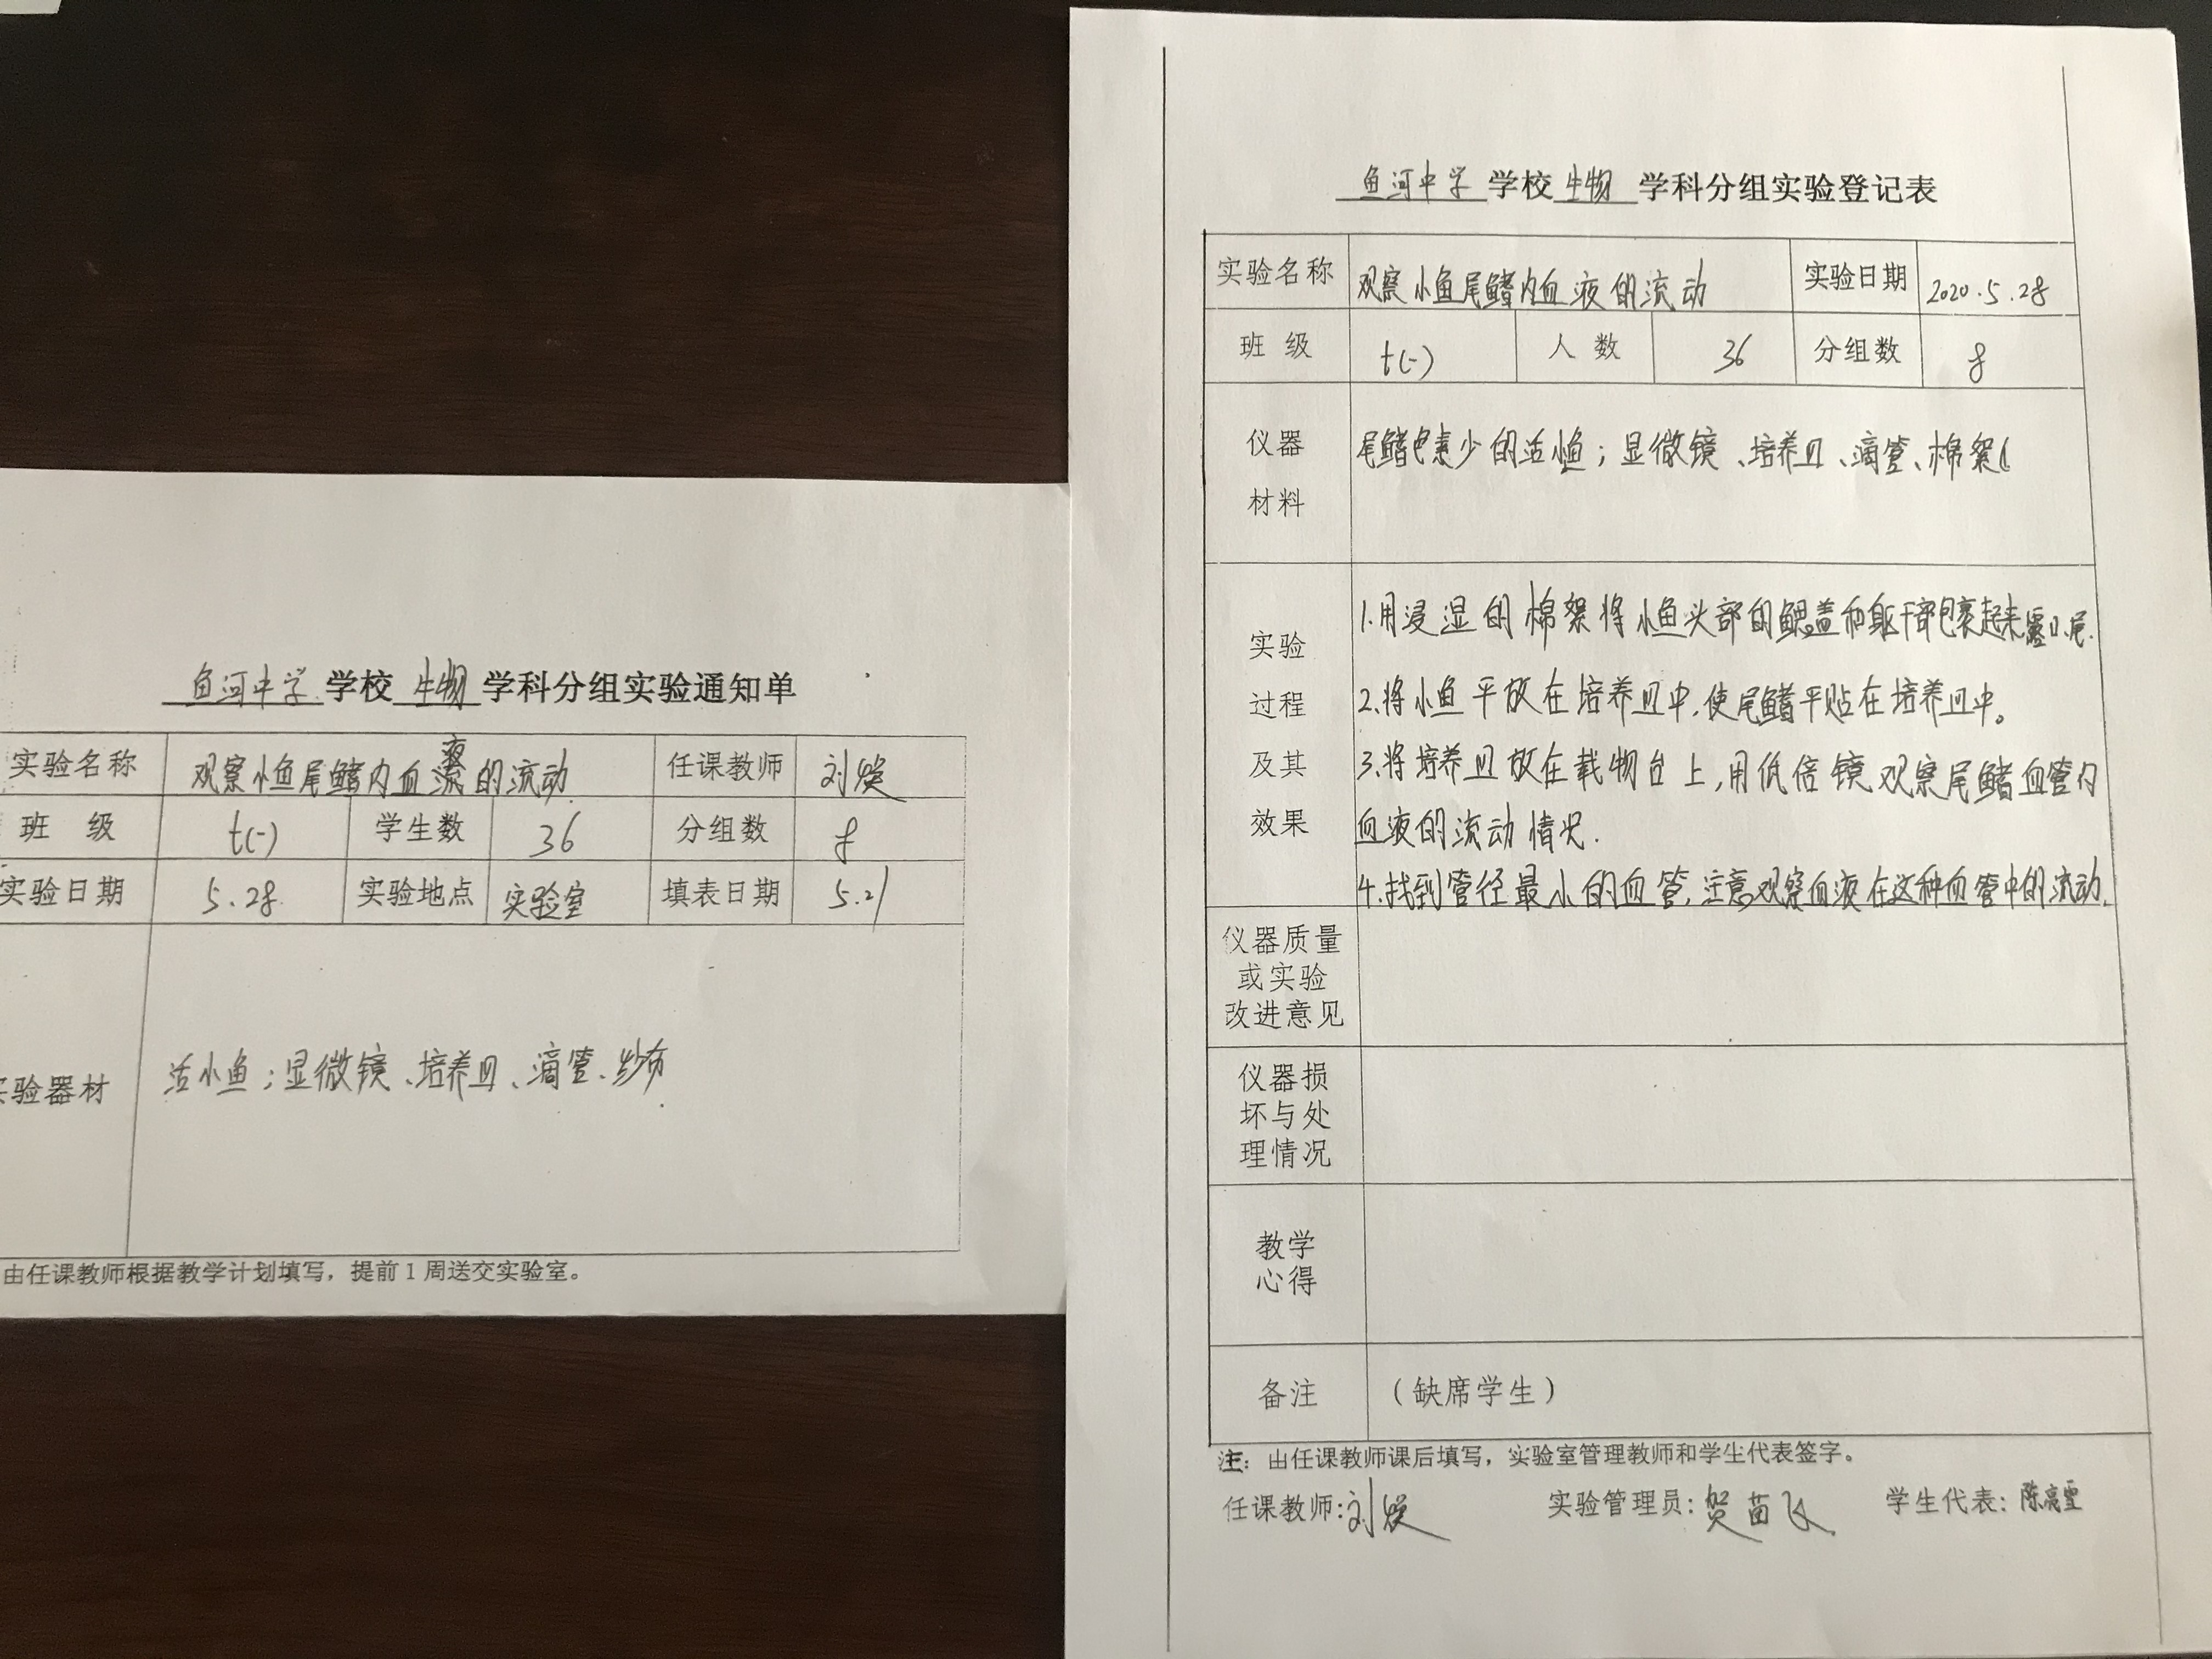 鱼河中学学校生物学科分组实验通知单
实验名称 观察小鱼尾鳍内血液的流动 任课教师 刘焕
班 级 七(一) 学生数 36 分组数 8
实验日期 5.28 实验地点 实验室 填表日期 5.21
验器材 活小鱼;显微镜、培养皿、滴管、纱布.
由任课教师根据教学计划填写,提前1周送交实验室。
鱼河中学学校生物学科分组实验登记表
实验名称 观察小鱼尾鳍内血液的流动 实验日期 2020.5.28
班 级 七(一) 人 数 36 分组数 8
仪器
材料
尾鳍色素少的活小鱼;显微镜、培养皿、滴管、棉絮
实验
过程
及其
效果
1.用浸湿的棉絮将小鱼头部的鳃盖和躯干部包裹起来露口、尾.
2.将小鱼平放在培养皿中,使尾鳍平贴在培养皿中。
3.将培养皿放在载物台上,用低倍镜观察尾鳍血管内
血液的流动情况.
4.找到管径最小的血管,注意观察血液在这种血管中的流动.
仪器质量
或实验
改进意见
仪器损
坏与处
理情况
教学
心得
备注 (缺席学生)
注: 由任课教师课后填写,实验室管理教师和学生代表签字。
任课教师:刘焕 实验管理员:贺苗飞 学生代表:陈亮雯